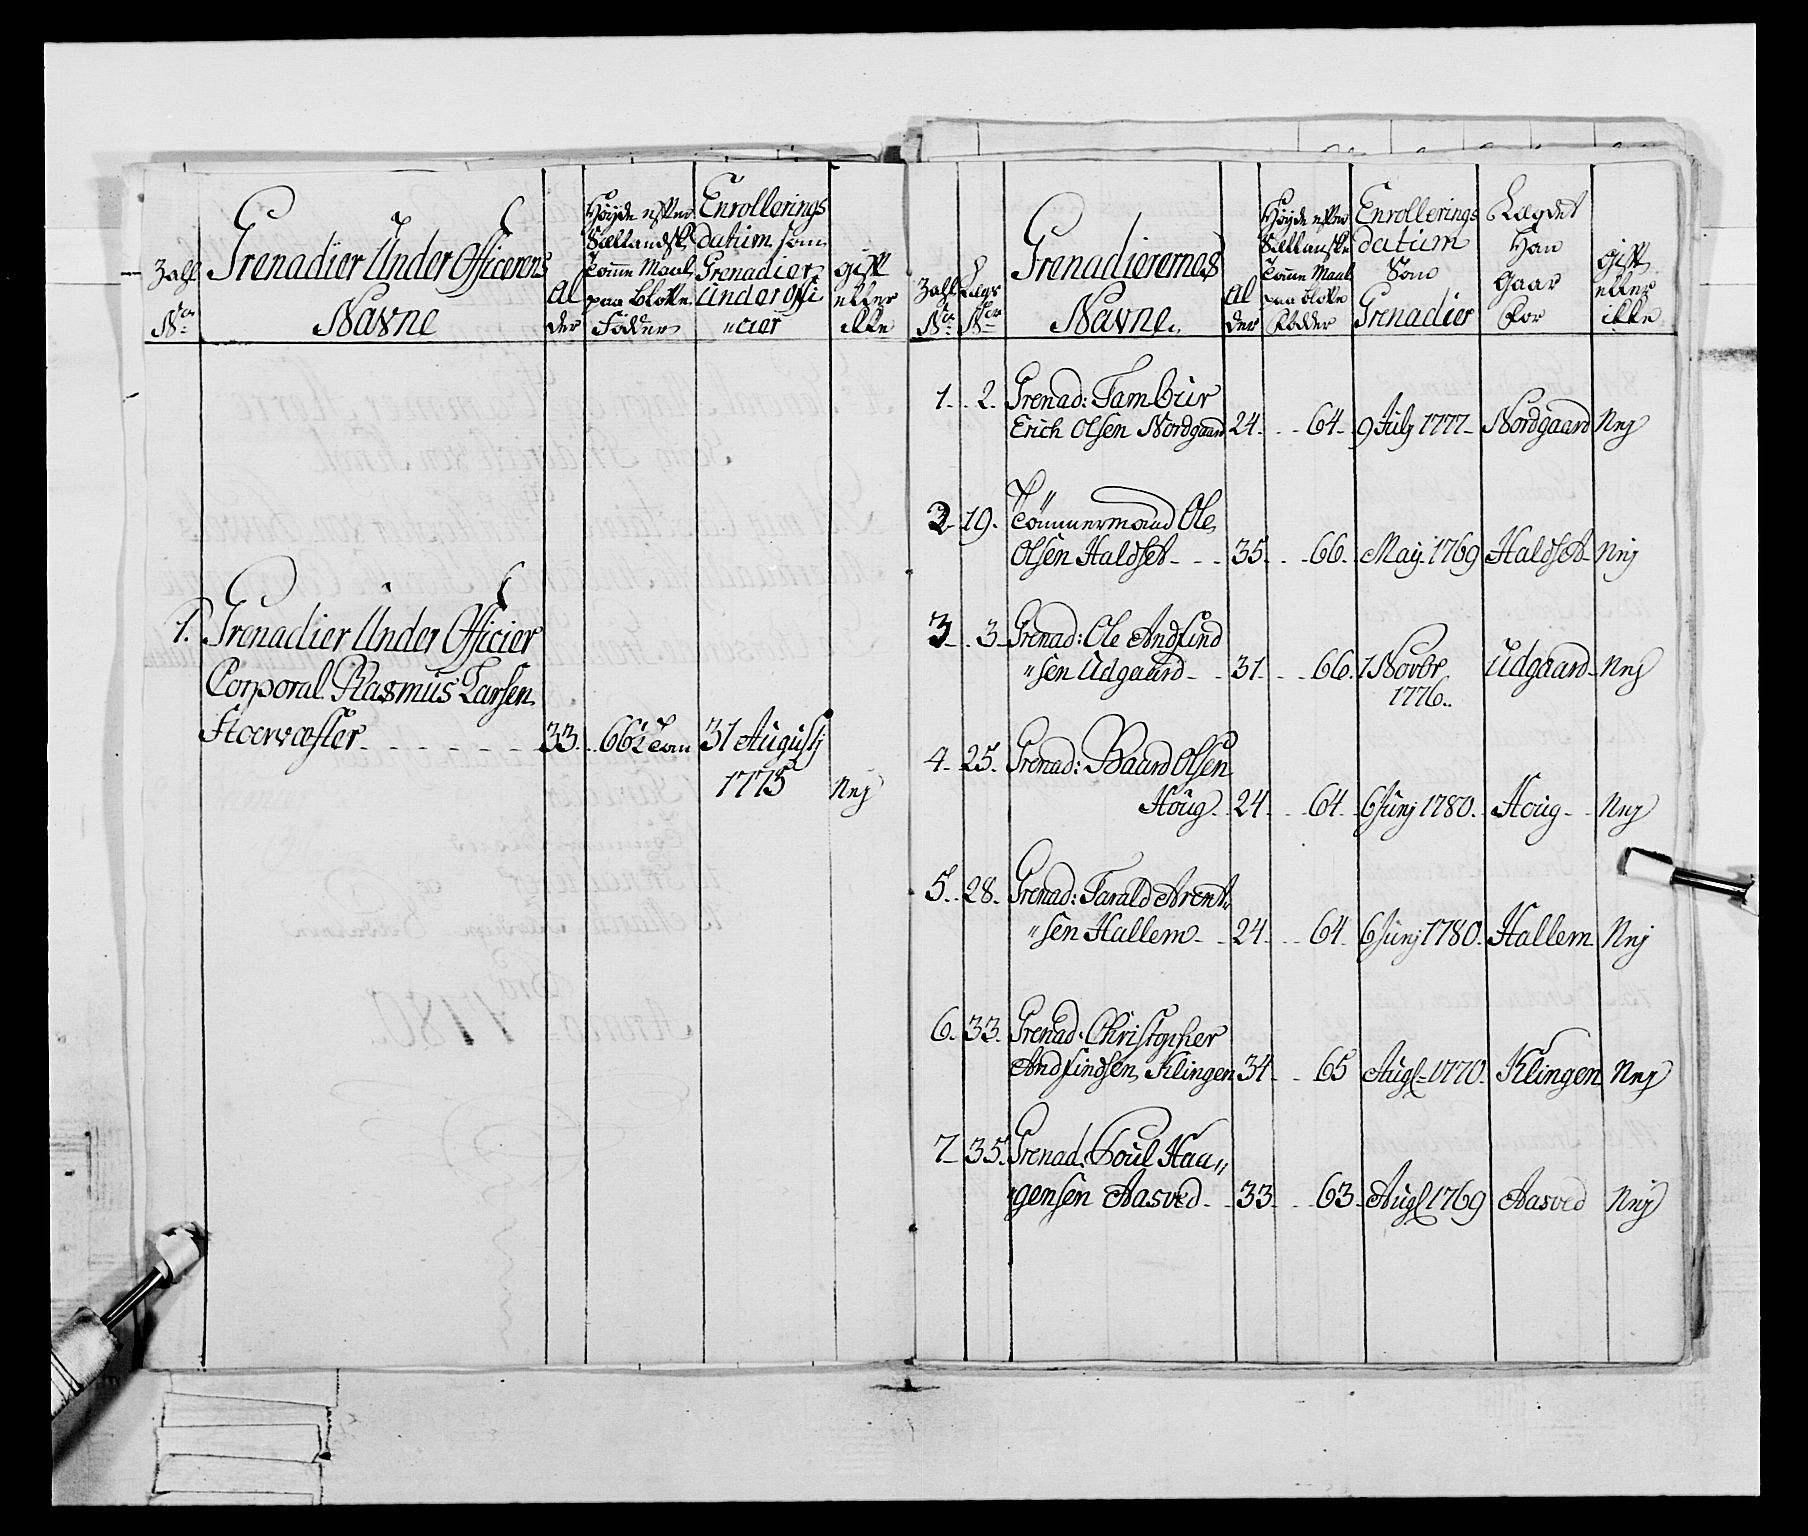 Zahl
Nr
Grenadier Under Officerens
Navne
Al
der
Høyde efter
Siellandsk
Tomme Maal
paa blotte
Födder
Enrollerings
datum som
Grenadier
Under Offi
"cier
gift
eller
ikke
1. Grenadier Under Officier
Corporal Rasmus Larsen
Stoervæsler 33. 66½ Tom 31 Augustj
1775 Nej
Zahl
Nr
Lægs
Nr
Grenadierernes
Navne.
Al
der
Høyde efter
Siellanske
Tomme Maal
paa blotte
Födder
Enrollerings
datum
Som
Grenadier
Lægdet
Han
gaar
for
gift
eller
ikke
1. 2. Grenad: Tambur
Erich Olsen Nordgaard 24. 64. 9 July 1777. Nordgaard Nej
2. 19. Tömmermand Ole
Olsen Haldset 35. 66. Maij 1769 Haldset Nej
3. 3. Grenad: Ole Andfind
"sen Udgaard 31. 66. 7 Novbr Udgaard Nej
1776.
4. 25. Grenad: Baard Olsen
Houg. 24. 64. 6 Junj 1780. Houg Nej
5. 28. Grenad: Farald Arent
"sen Hallem 24. 64. 6 Junj 1780. Hallem Nej
6. 33. Grenad: Christopher
Andfindsen Klingen 34. 65 Augl 1770. Klingen Nej
7. 35. Grenad. Poul Haa"
"gensen Aasved 33. 63. Augl 1769 Aasved Nej